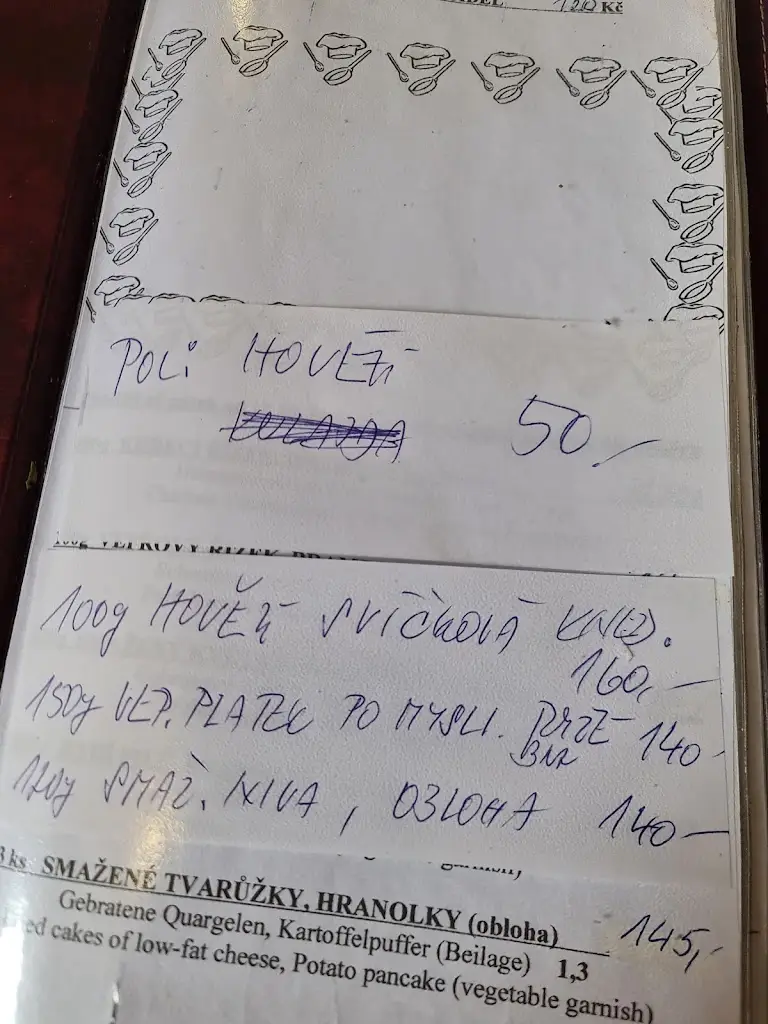 120 Kč
POLI HOVĚZÍ
50,-
100g HOVĚZÍ SVÍČKOVÁ KNED.
160,-
150g VEP. PLATEK PO MYSLI. RYZE 140
BAR
120g SMAŽ. NIVA, OBLOHA 140-
3 ks SMAŽENÉ TVARŮŽKY, HRANOLKY (obloha) 145,-
Gebratene Quargelen, Kartoffelpuffer (Beilage) 1,3
cakes of low-fat cheese, Potato pancake (vegetable garnish)